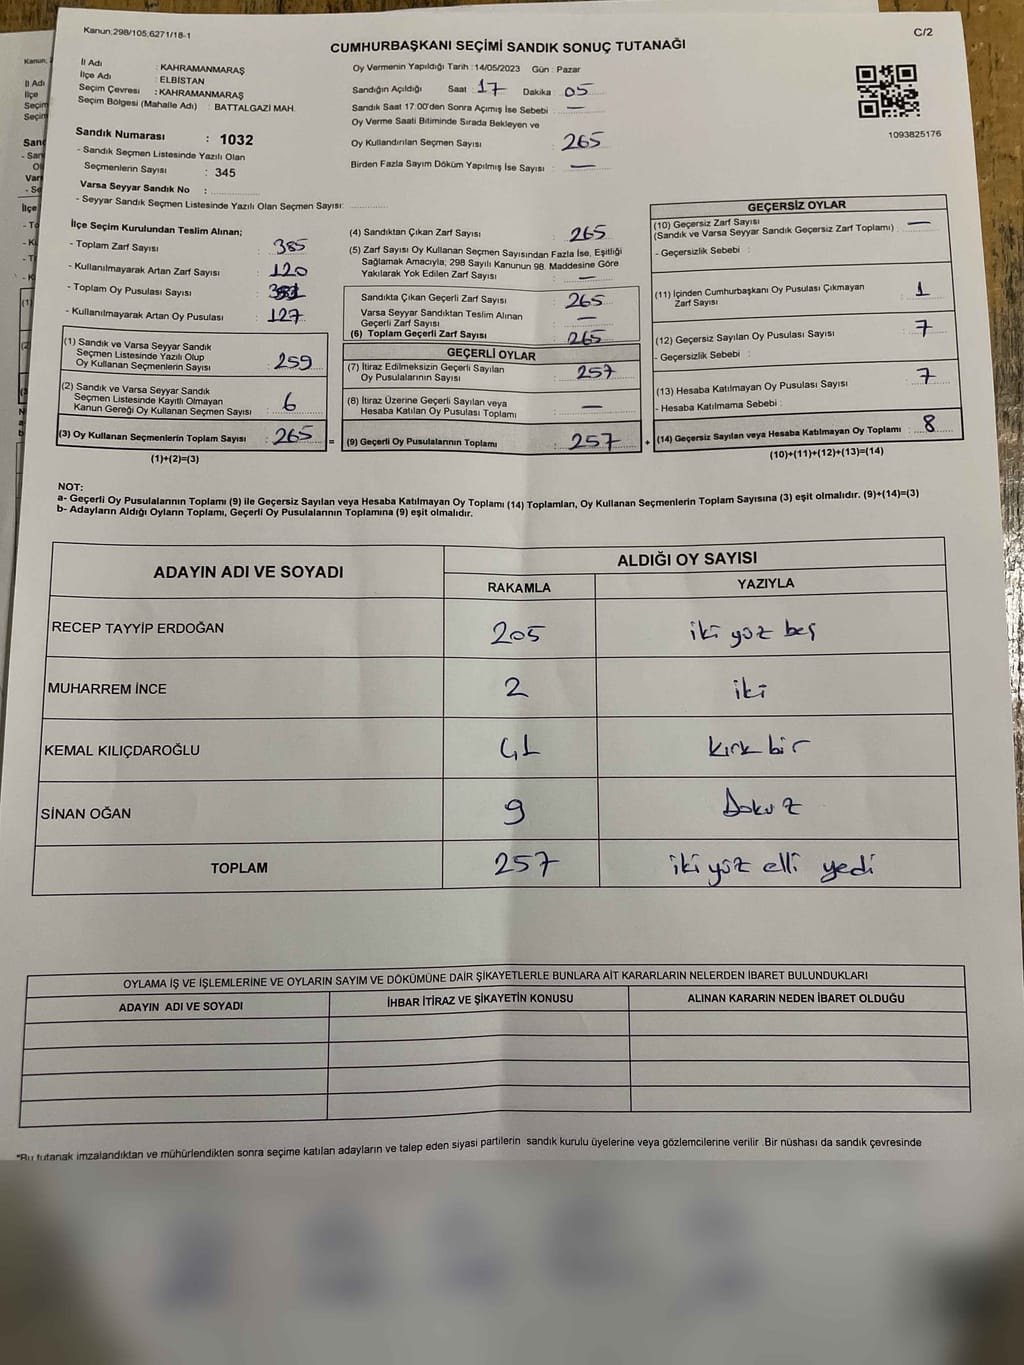 Kanun;298/105,6271/18-1
C/2
CUMHURBAŞKANI SEÇİMİ SANDIK SONUÇ TUTANAĞI
İl Adı : KAHRAMANMARAŞ
İlçe Adı : ELBİSTAN
Seçim Çevresi : KAHRAMANMARAŞ
Seçim Bölgesi (Mahalle Adı) : BATTALGAZİ MAH.
Sandık Numarası : 1032
- Sandık Seçmen Listesinde Yazılı Olan
Seçmenlerin Sayısı : 345
Varsa Seyyar Sandık No :
- Seyyar Sandık Seçmen Listesinde Yazılı Olan Seçmen Sayısı:
Oy Vermenin Yapıldığı Tarih :14/05/2023 Gün : Pazar
Sandığın Açıldığı Saat : 17 Dakika : 05
Sandık Saat 17:00'den Sonra Açımış İse Sebebi : —
Oy Verme Saati Bitiminde Sırada Bekleyen ve
Oy Kullandırılan Seçmen Sayısı : 265
Birden Fazla Sayım Döküm Yapılmış İse Sayısı : —
1093825176
İlçe Seçim Kurulundan Teslim Alınan;
- Toplam Zarf Sayısı : 385
- Kullanılmayarak Artan Zarf Sayısı : 120
- Toplam Oy Pusulası Sayısı :
- Kullanılmayarak Artan Oy Pusulası : 127
(1) Sandık ve Varsa Seyyar Sandık
Seçmen Listesinde Yazılı Olup
Oy Kullanan Seçmenlerin Sayısı : 259
(2) Sandık ve Varsa Seyyar Sandık
Seçmen Listesinde Kayıtlı Olmayan
Kanun Gereği Oy Kullanan Seçmen Sayısı : 6
(3) Oy Kullanan Seçmenlerin Toplam Sayısı : 265
(1)+(2)=(3)
=
(4) Sandıktan Çıkan Zarf Sayısı : 265
(5) Zarf Sayısı Oy Kullanan Seçmen Sayısından Fazla İse, Eşitliği
Sağlamak Amacıyla; 298 Sayılı Kanunun 98. Maddesine Göre
Yakılarak Yok Edilen Zarf Sayısı : —
Sandıkta Çıkan Geçerli Zarf Sayısı : 265
Varsa Seyyar Sandıktan Teslim Alınan
Geçerli Zarf Sayısı : —
(6) Toplam Geçerli Zarf Sayısı : 265
GEÇERLİ OYLAR
(7) İtiraz Edilmeksizin Geçerli Sayılan
Oy Pusulalarının Sayısı : 257
(8) İtiraz Üzerine Geçerli Sayılan veya
Hesaba Katılan Oy Pusulaları Toplamı : —
(9) Geçerli Oy Pusulalarının Toplamı : 257
+
GEÇERSİZ OYLAR
(10) Geçersiz Zarf Sayısı
(Sandık ve Varsa Seyyar Sandık Geçersiz Zarf Toplamı) : —
- Geçersizlik Sebebi :
(11) İçinden Cumhurbaşkanı Oy Pusulası Çıkmayan
Zarf Sayısı : 1
(12) Geçersiz Sayılan Oy Pusulası Sayısı : 7
- Geçersizlik Sebebi :
(13) Hesaba Katılmayan Oy Pusulası Sayısı : 7
- Hesaba Katılmama Sebebi :
(14) Geçersiz Sayılan veya Hesaba Katılmayan Oy Toplamı : 8
(10)+(11)+(12)+(13)=(14)
NOT:
a- Geçerli Oy Pusulalarının Toplamı (9) ile Geçersiz Sayılan veya Hesaba Katılmayan Oy Toplamı (14) Toplamları, Oy Kullanan Seçmenlerin Toplam Sayısına (3) eşit olmalıdır. (9)+(14)=(3)
b- Adayların Aldığı Oyların Toplamı, Geçerli Oy Pusulalarının Toplamına (9) eşit olmalıdır.
ADAYIN ADI VE SOYADI
ALDIĞI OY SAYISI
RAKAMLA YAZIYLA
RECEP TAYYİP ERDOĞAN 205 iki yüz beş
MUHARREM İNCE 2 iki
KEMAL KILIÇDAROĞLU 41 kırk bir
SİNAN OĞAN 9 Dokuz
TOPLAM 257 iki yüz elli yedi
OYLAMA İŞ VE İŞLEMLERİNE VE OYLARIN SAYIM VE DÖKÜMÜNE DAİR ŞİKAYETLERLE BUNLARA AİT KARARLARIN NELERDEN İBARET BULUNDUKLARI
ADAYIN ADI VE SOYADI İHBAR İTİRAZ VE ŞİKAYETİN KONUSU ALINAN KARARIN NEDEN İBARET OLDUĞU
*Bu tutanak imzalandıktan ve mühürlendikten sonra seçime katılan adayların ve talep eden siyasi partilerin sandık kurulu üyelerine veya gözlemcilerine verilir .Bir nüshası da sandık çevresinde